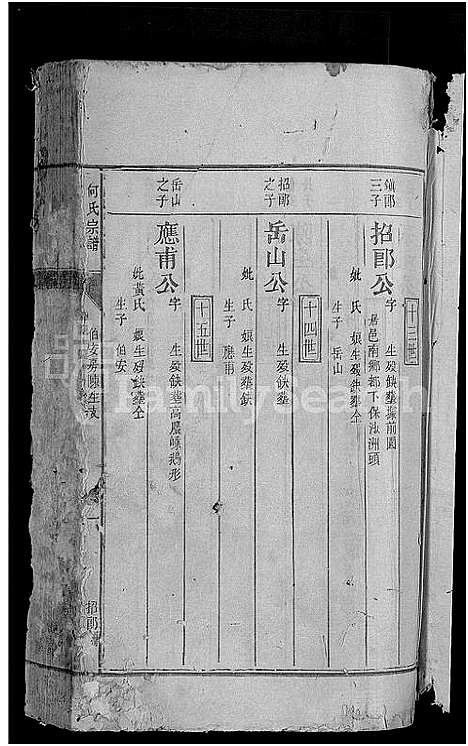 十三世
鎮郎三子
招郎公
字 生歿缺塟壕前園
居邑南鄉都下保汝洲頭
妣 氏 娘生歿缺塟仝
生子 岳山
十四世
招郎之子
岳山公
字 生歿缺塟缺
妣 氏 娘生歿塟缺
生子 應甫
十五世
岳山之子
應甫公
字 生歿缺塟高 鵝形
妣黃氏 娘生歿缺塟仝
生子 伯安
何氏宗譜
招郎
FamilySearch